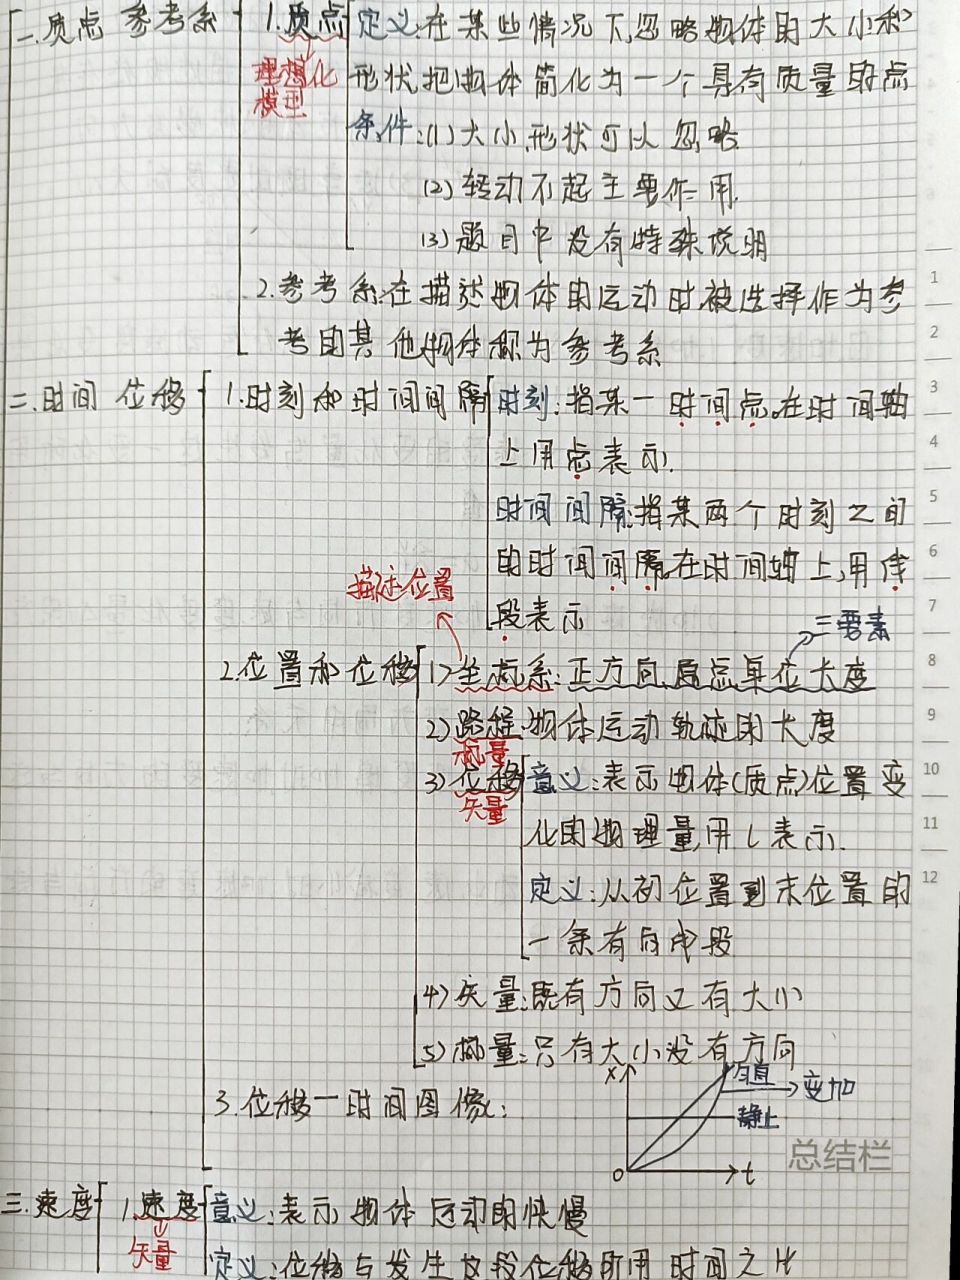 一.质点 参考系
1.质点
理想化
模型
定义:在某些情况下,忽略物体的大小和
形状把物体简化为一个具有质量的点
条件:(1)大小形状可以忽略
(2)转动不起主要作用.
(3)题目中没有特殊说明
2.参考系:在描述物体的运动时被选择作为参
考的其他物体称为参考系
二.时间 位移
1.时刻和时间间隔
时刻:指某一时间点.在时间轴
上用点表示.
时间间隔:指某两个时刻之间
的时间间隔,在时间轴上,用线
段表示
描述位置
三要素
2.位置和位移
1)坐标系:正方向,原点单位长度
2)路程:物体运动轨迹的长度
标量
3)位移
矢量
意义:表示物体(质点)位置变
化的物理量,用l表示.
定义:从初位置到末位置的
一条有向线段
4)矢量:既有方向又有大小
5)标量:只有大小没有方向
3.位移一时间图像:
x
匀直
变加
静止
0
t
总结栏
三.速度
1.速度
矢量
意义:表示物体运动的快慢
定义:位移与发生这段位移所用时间之比
1
2
3
4
5
6
7
8
9
10
11
12